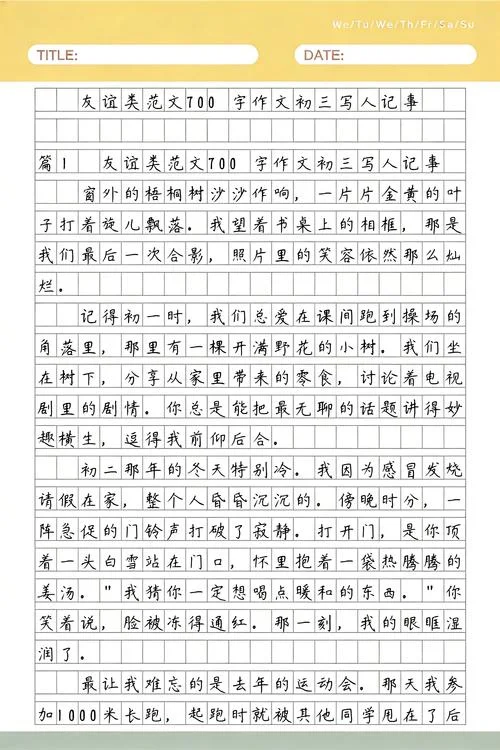 We/Tu/We/Th/Fr/Sa/Su
TITLE:
DATE:
友谊类范文700 字作文初三写人记事
篇1 友谊类范文700 字作文初三写人记事
窗外的梧桐树沙沙作响，一片片金黄的叶
子打着旋儿飘落。我望着书桌上的相框，那是
我们最后一次合影，照片里的笑容依然那么灿
烂。
记得初一时，我们总爱在课间跑到操场的
角落里，那里有一棵开满野花的小树。我们坐
在树下，分享从家里带来的零食，讨论着电视
剧里的剧情。你总是能把最无聊的话题讲得妙
趣横生，逗得我前仰后合。
初二那年的冬天特别冷。我因为感冒发烧
请假在家，整个人昏昏沉沉的。傍晚时分，一
阵急促的门铃声打破了寂静。打开门，是你顶
着一头白雪站在门口，怀里抱着一袋热腾腾的
姜汤。"我猜你一定想喝点暖和的东西。"你
笑着说，脸被冻得通红。那一刻，我的眼眶湿
润了。
最让我难忘的是去年的运动会。那天我参
加1000米长跑，起跑时就被其他同学甩在了后